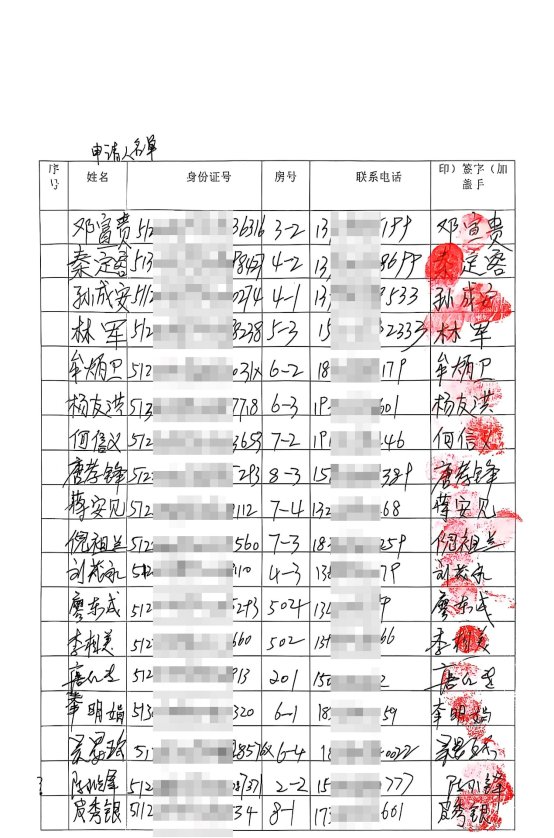 申请人名单
序号 姓名 身份证号 房号 联系电话 印）签字（加盖手
邓宣贵 512 36316 3-2 13 199 邓宣贵
秦定容 513 4-2 13 秦定容
孙成安 512 0274 4-1 13 533 孙成安
林军 512 8238 5-3 15 2333 林军
牟炳卫 512 031X 6-2 18 179 牟炳卫
杨友洪 513 7718 6-3 19 601 杨友洪
何信义 512 3653 7-2 19 46 何信义
唐孝锋 512 5293 8-3 15 389 唐孝锋
蒋安见 512 9112 7-4 132 68 蒋安见
倪祖兰 512 560 7-3 18 259 倪祖兰
刘兹永 512 110 4-3 13 79 刘兹永
廖东成 512 5293 504 13 9 廖东成
李相美 512 660 502 13 66 李相美
唐 512 913 201 150 2 唐
李明娟 513 320 6-1 18 59 李明娟
51 6-4 18
陈 锋 512 2-2 15 777 陈 锋
皮秀银 512 34 8-1 173 601 皮秀银